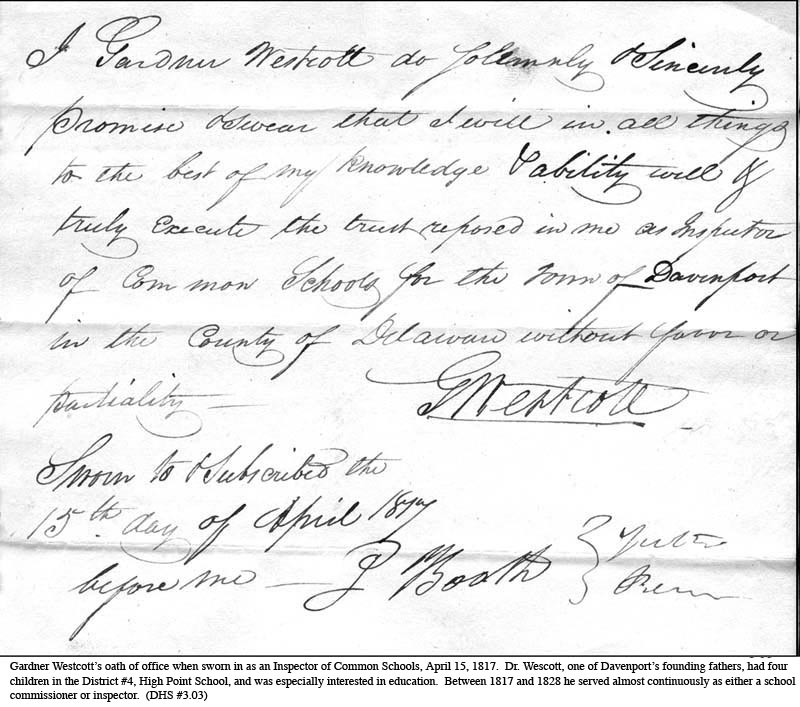 I Gardner Westcott do Solemnly & Sincerely
promise & swear that I will in all things
to the best of my knowledge & ability well &
truly Execute the trust reposed in me as Inspector
of Common Schools for the Town of Davenport
in the County of Delaware without favor or
partiality —
G Westcott
Sworn to & Subscribed the
15th day of April 1817
before me — J Booth
Gardner Westcott’s oath of office when sworn in as an Inspector of Common Schools, April 15, 1817.  Dr. Wescott, one of Davenport’s founding fathers, had four
children in the District #4, High Point School, and was especially interested in education.  Between 1817 and 1828 he served almost continuously as either a school
commissioner or inspector.  (DHS #3.03)